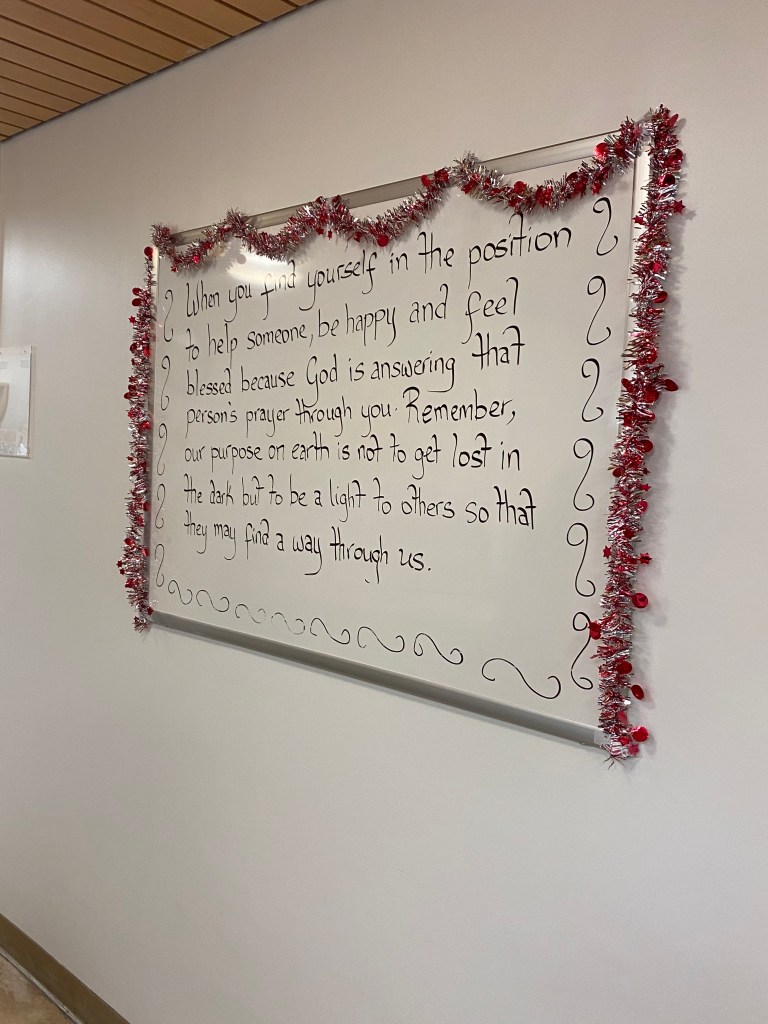 When you find yourself in the position
to help someone, be happy and feel
blessed because God is answering that
person's prayer through you. Remember,
our purpose on earth is not to get lost in
the dark but to be a light to others so that
they may find a way through us.